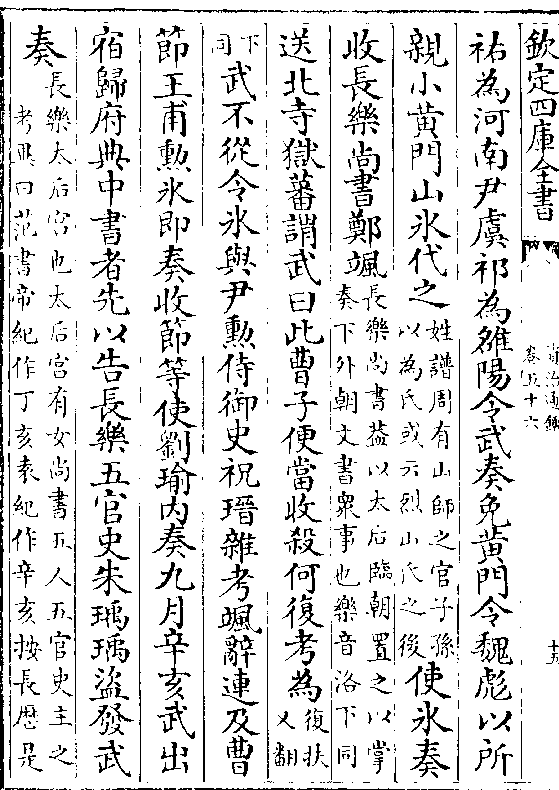 欽定四庫全書
資治通鑑
卷五十六
十五
祐為河南尹虞祁為雒陽令武奏免黄門令魏彪以所
親小黄門山氷代之姓譜周有山師之官子孫以為氏或云烈山氏之後使氷奏
收長樂尚書鄭颯長樂尚書葢以太后臨朝置之以掌奏下外朝文書衆事也樂音洛下同
送北寺獄蕃謂武曰此曹子便當收殺何復考為復扶又翻
下同武不從令氷與尹勲侍御史祝瑨雜考颯辭連及曹
節王甫勲氷即奏收節等使劉瑜内奏九月辛亥武出
宿歸府典中書者先以告長樂五官史朱瑀瑀盜發武
奏長樂太后宫也太后宫有女尚書五人五官史主之考異曰范書帝紀作丁亥袁紀作辛亥按長歴是